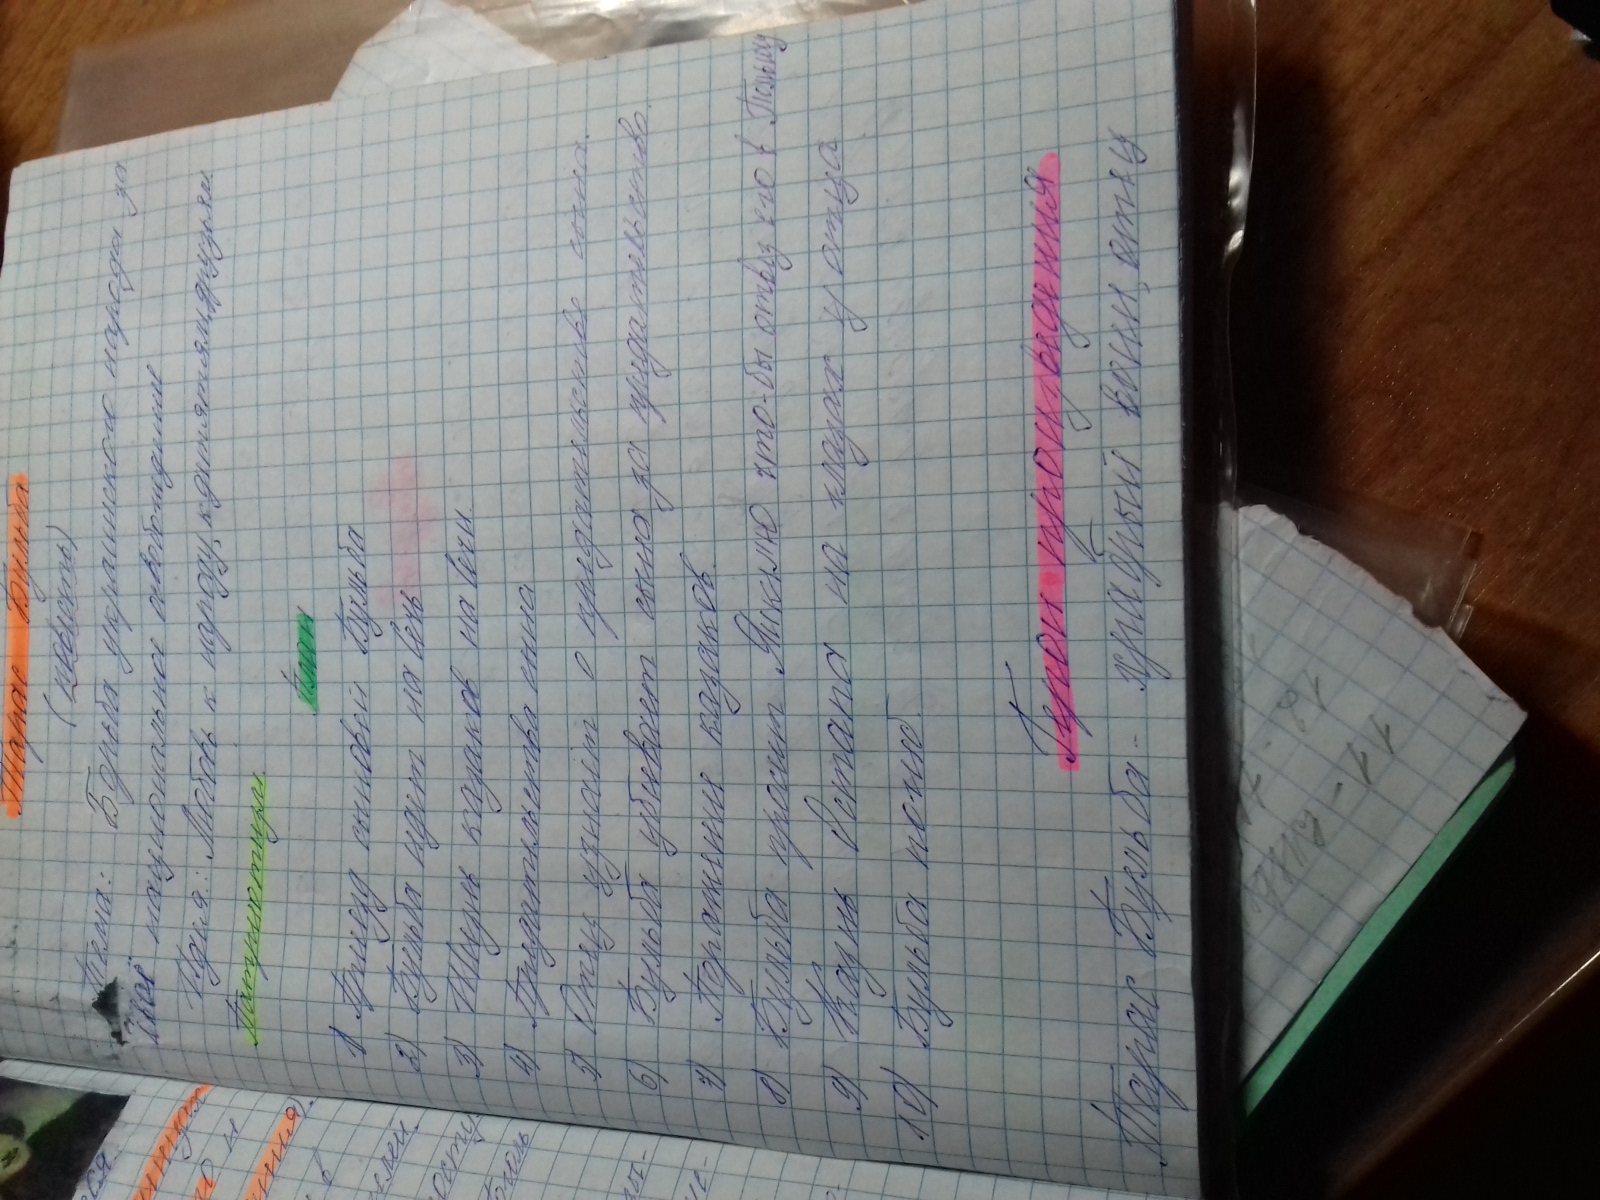 Тарас Бульба
(повесть)
Тема: Борьба украинского народа за
своё национальное освобождение
Идея: Любовь к народу, к
Патриотизм.
План
1) Приезд сыновей Бульба
2) Бульба едет на Сечь
3) казаков на Сечи.
4) Предательство сына
5) Отец узнаёт о предательстве сына.
6) Бульба убивает сына за предательство.
7) Поражение казаков.
8) Бульба просит Янкелю что-бы отвёз его в Польшу
9) Казнь Остапа на глазах у отца
10) Бульба погиб.
Герои произведения
Тарас Бульба - храбрый воин, отец